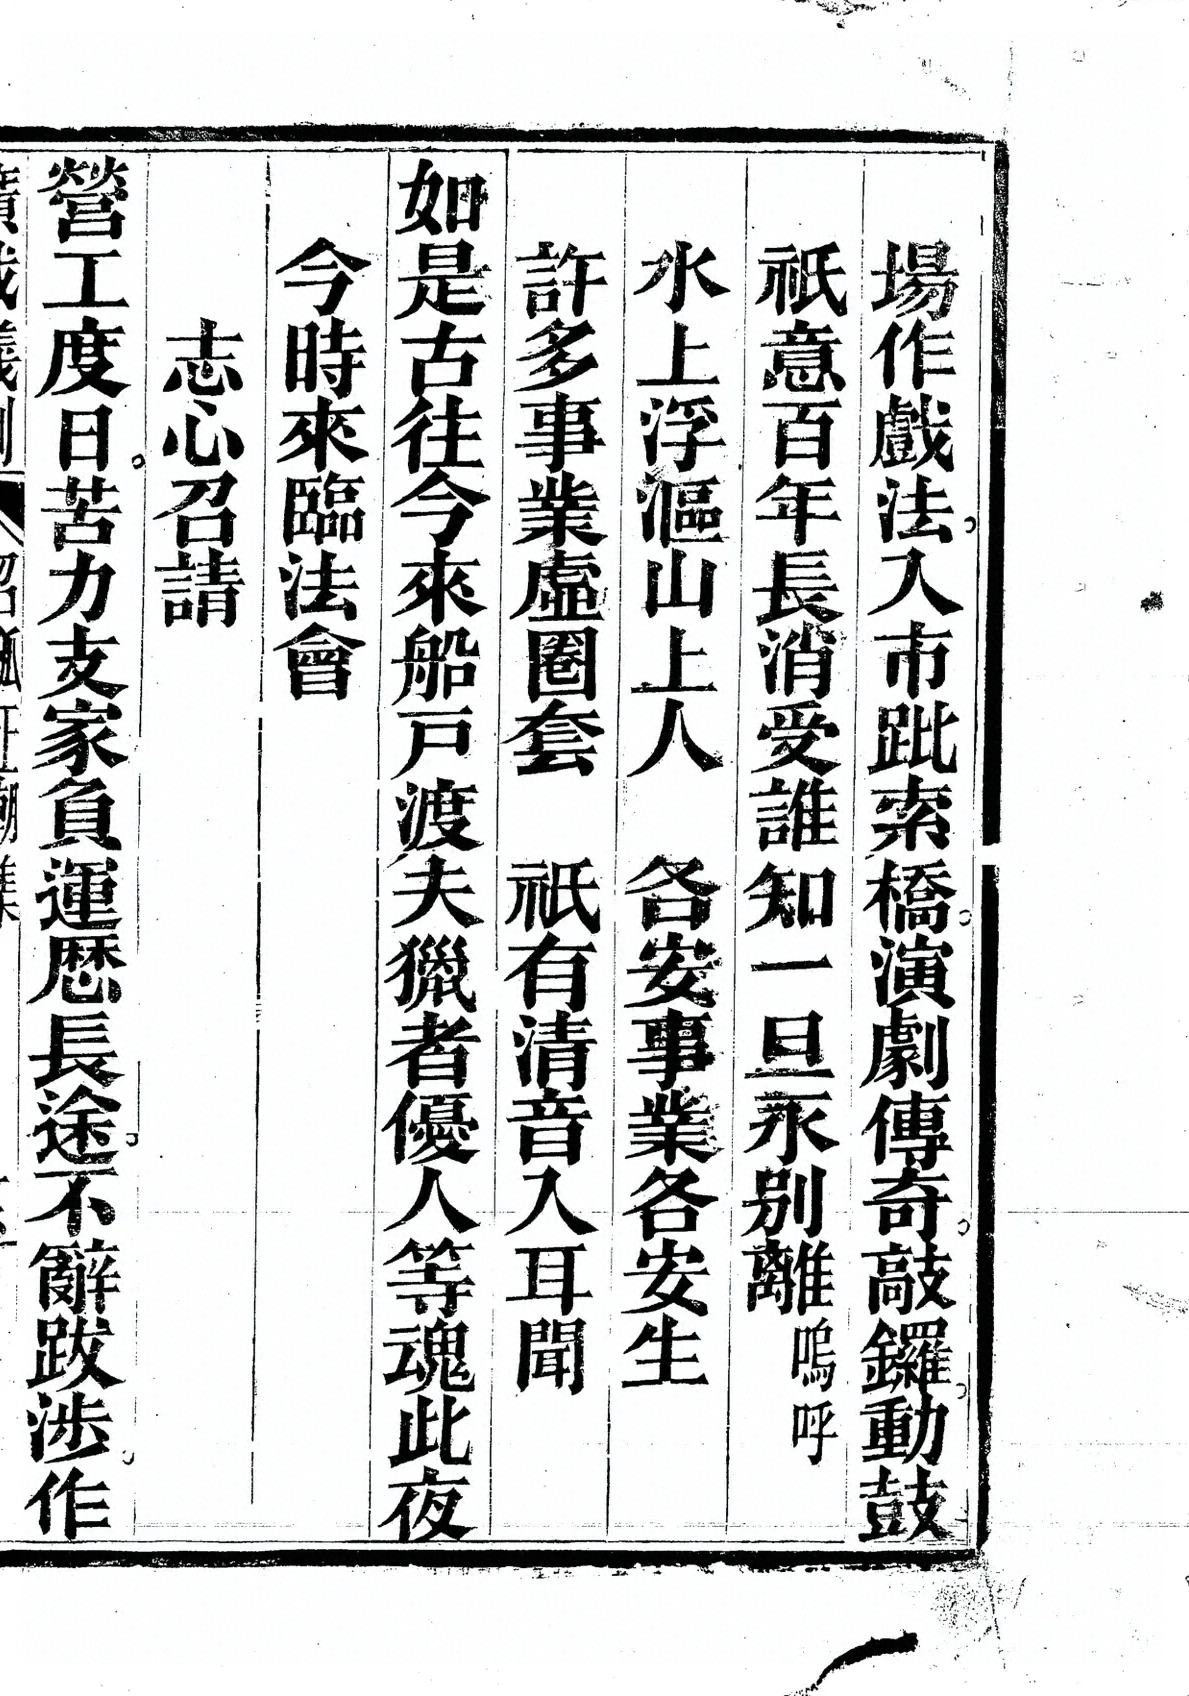 場作戲法入市跐索橋演劇傳奇敲鑼動鼓
祇意百年長消受誰知一旦永别離嗚呼
水上浮漚山上人　各安事業各安生
許多事業虛圈套　祇有清音入耳聞
如是古往今來船戸渡夫獵者優人等魂此夜
今時來臨法會
志心召請
營工度日苦力支家負運歷長途不辭跋涉作